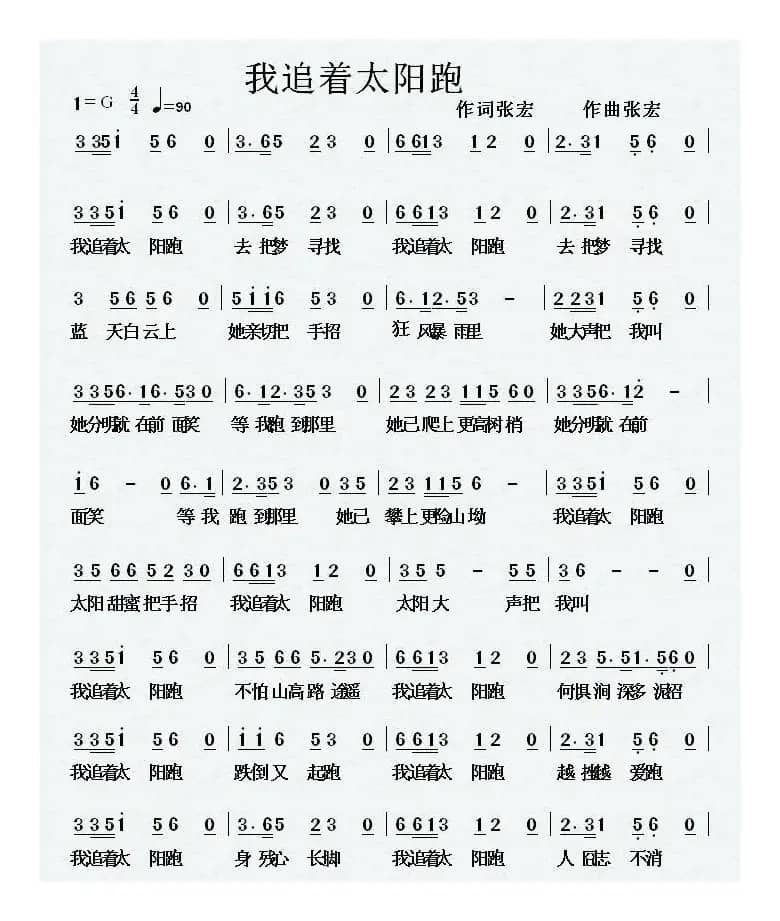 我追着太阳跑
1=G 4/4 ♩=90
作词张宏 作曲张宏
3 3 5 1̇ 5 6 0 | 3. 6 5 2 3 0 | 6 6 1 3 1 2 0 | 2. 3 1 5̣ 6̣ 0 |
3 3 5 1̇ 5 6 0 | 3. 6 5 2 3 0 | 6 6 1 3 1 2 0 | 2. 3 1 5̣ 6̣ 0 |
我追着太 阳跑 去 把梦 寻找 我追着太 阳跑 去 把梦 寻找
3 5 6 5 6 0 | 5 1̇ 1̇ 6 5 3 0 | 6. 1 2. 5 3 – | 2 2 3 1 5̣ 6̣ 0 |
蓝 天白云上 她亲切把 手招 狂 风暴 雨里 她大声把 我叫
3 3 5 6. 1 6. 5 3 0 | 6. 1 2. 3 5 3 0 | 2 3 2 3 1 1 5 6 0 | 3 3 5 6. 1 2̇ – |
她分明就 在前 面笑 等 我跑 到那里 她已爬上更高树梢 她分明就 在前
1̇ 6 – 0 6. 1 | 2. 3 5 3 0 3 5 | 2 3 1 1 5 6 – | 3 3 5 1̇ 5 6 0 |
面笑 等 我 跑 到那里 她已 攀上更险山 坳 我追着太 阳跑
3 5 6 6 5 2 3 0 | 6 6 1 3 1 2 0 | 3 5 5 – 5 5 | 3 6 – – 0 |
太阳甜蜜把手招 我追着太 阳跑 太阳大 声把 我叫
3 3 5 1̇ 5 6 0 | 3 5 6 6 5. 2 3 0 | 6 6 1 3 1 2 0 | 2 3 5. 5 1. 5̣ 6̣ 0 |
我追着太 阳跑 不怕山高路 途遥 我追着太 阳跑 何惧 涧 深多 泥沼
3 3 5 1̇ 5 6 0 | 1̇ 1̇ 6 5 3 0 | 6 6 1 3 1 2 0 | 2. 3 1 5̣ 6̣ 0 |
我追着太 阳跑 跌倒又 起跑 我追着太 阳跑 越 挫越 爱跑
3 3 5 1̇ 5 6 0 | 3. 6 5 2 3 0 | 6 6 1 3 1 2 0 | 2. 3 1 5̣ 6̣ 0 |
我追着太 阳跑 身 残心 长脚 我追着太 阳跑 人 囧志 不消